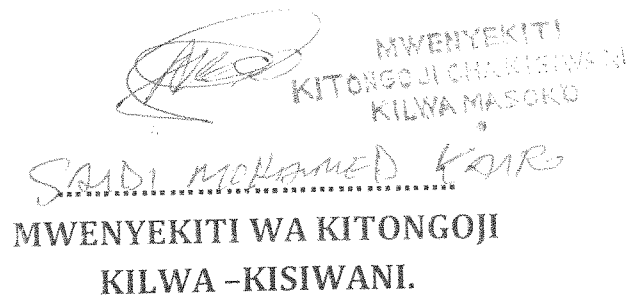 MWENYEKITI
KITONGOJI CHA KISIWANI
KILWA MASOKO
SAIDI MOHAMED
MWENYEKITI WA KITONGOJI
KILWA –KISIWANI.